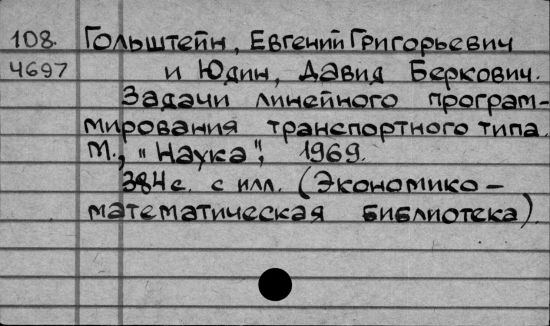 108. Гольштейн, Евгений Григорьевич
4697 и Юдин, Давид Беркович.
Задачи линейного програм-
мирования транспортного типа.
М., "Наука", 1969.
384 с. с илл. (Экономико-
математическая библиотека).